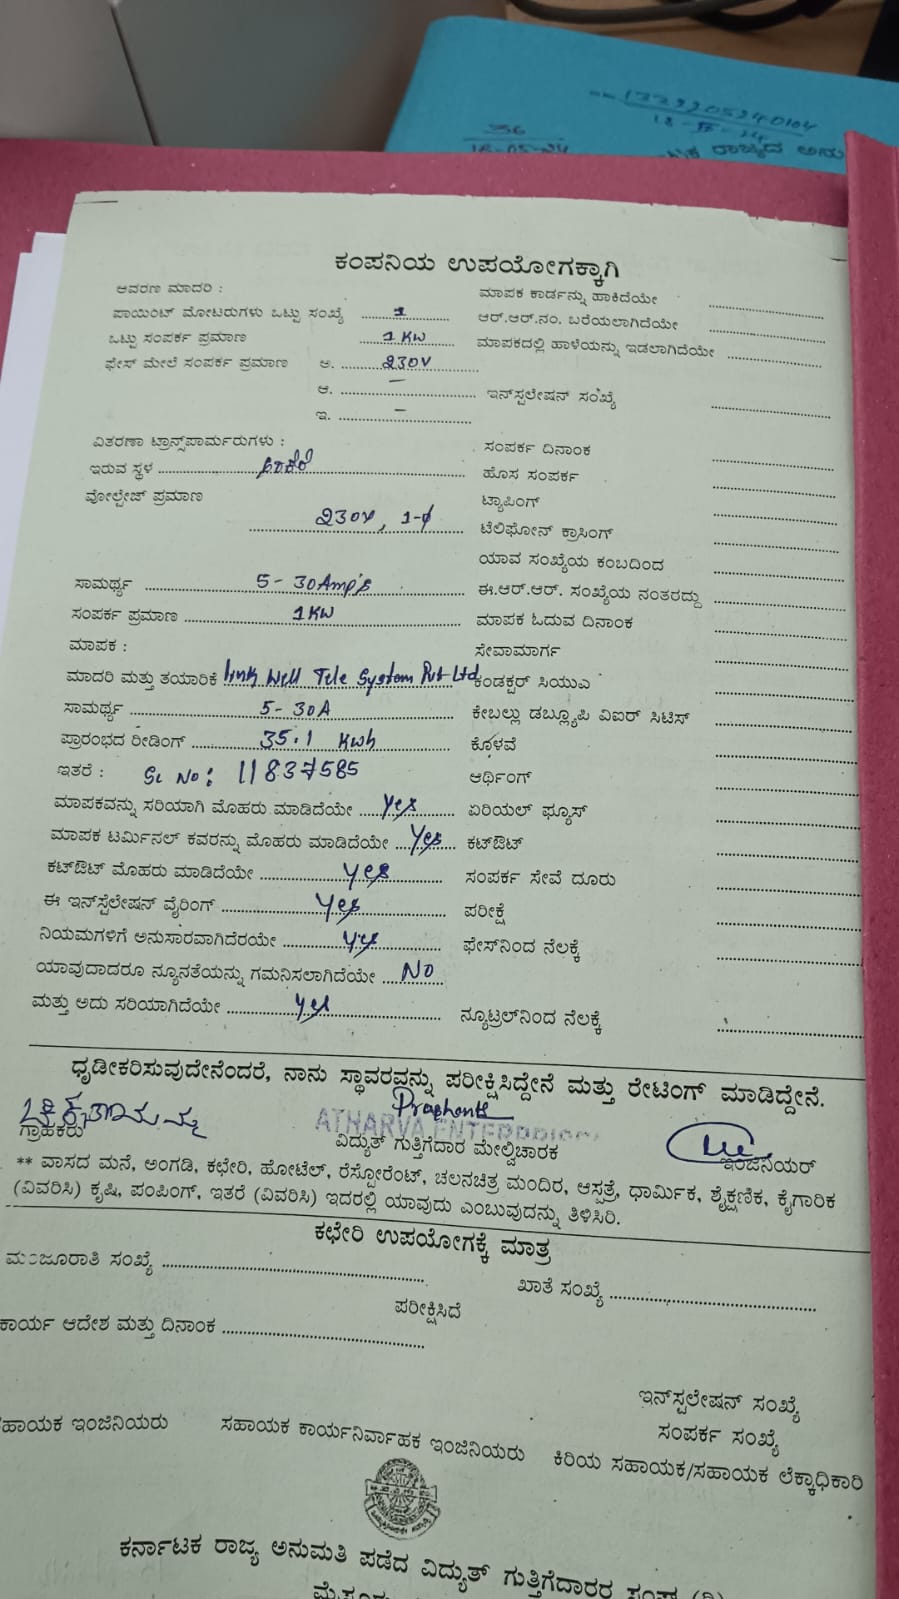 1329205240104
36
18-05-24
ರಾಜ್ಯದ ಅನು
ಕಂಪನಿಯ ಉಪಯೋಗಕ್ಕಾಗಿ
ಆವರಣ ಮಾದರಿ :
ಮಾಪಕ ಕಾರ್ಡನ್ನು ಹಾಕಿದೆಯೇ
ಪಾಯಿಂಟ್ ಮೋಟರುಗಳು ಒಟ್ಟು ಸಂಖ್ಯೆ 1
ಆರ್.ಆರ್.ನಂ. ಬರೆಯಲಾಗಿದೆಯೇ
ಒಟ್ಟು ಸಂಪರ್ಕ ಪ್ರಮಾಣ 1 KW
ಮಾಪಕದಲ್ಲಿ ಹಾಳೆಯನ್ನು ಇಡಲಾಗಿದೆಯೇ
ಫೇಸ್ ಮೇಲೆ ಸಂಪರ್ಕ ಪ್ರಮಾಣ ಅ. 230V
ಆ. –
ಇನ್‌ಸ್ಟಲೇಷನ್ ಸಂಖ್ಯೆ
ಇ. –
ವಿತರಣಾ ಟ್ರಾನ್ಸ್‌ಪಾರ್ಮರುಗಳು :
ಸಂಪರ್ಕ ದಿನಾಂಕ
ಇರುವ ಸ್ಥಳ
ಹೊಸ ಸಂಪರ್ಕ
ವೋಲ್ಟೇಜ್ ಪ್ರಮಾಣ
ಟ್ಯಾಪಿಂಗ್
230V, 1-ϕ
ಟೆಲಿಫೋನ್ ಕ್ರಾಸಿಂಗ್
ಯಾವ ಸಂಖ್ಯೆಯ ಕಂಬದಿಂದ
ಸಾಮರ್ಥ್ಯ 5-30Amp's
ಈ.ಆರ್.ಆರ್. ಸಂಖ್ಯೆಯ ನಂತರದ್ದು
ಸಂಪರ್ಕ ಪ್ರಮಾಣ 1KW
ಮಾಪಕ ಓದುವ ದಿನಾಂಕ
ಮಾಪಕ :
ಸೇವಾಮಾರ್ಗ
ಮಾದರಿ ಮತ್ತು ತಯಾರಿಕೆ link Well Tele System Pvt Ltd
ಕಂಡಕ್ಟರ್ ಸಿಯುಎ
ಸಾಮರ್ಥ್ಯ 5-30A
ಕೇಬಲ್ಲು ಡಬ್ಲ್ಯೂಪಿ ವಿಐರ್ ಸಿಟಿಸ್
ಪ್ರಾರಂಭದ ರೀಡಿಂಗ್ 35.1 Kwh
ಕೊಳವೆ
ಇತರೆ : SL No: 11837585
ಆರ್ಥಿಂಗ್
ಮಾಪಕವನ್ನು ಸರಿಯಾಗಿ ಮೊಹರು ಮಾಡಿದೆಯೇ Yes
ಏರಿಯಲ್ ಫ್ಯೂಸ್
ಮಾಪಕ ಟರ್ಮಿನಲ್ ಕವರನ್ನು ಮೊಹರು ಮಾಡಿದೆಯೇ Yes
ಕಟ್‌ಔಟ್
ಕಟ್‌ಔಟ್ ಮೊಹರು ಮಾಡಿದೆಯೇ Yes
ಸಂಪರ್ಕ ಸೇವೆ ದೂರು
ಈ ಇನ್‌ಸ್ಟೆಲೇಷನ್ ವೈರಿಂಗ್ Yes
ಪರೀಕ್ಷೆ
ನಿಯಮಗಳಿಗೆ ಅನುಸಾರವಾಗಿದೆರಯೇ Yes
ಫೇಸ್‌ನಿಂದ ನೆಲಕ್ಕೆ
ಯಾವುದಾದರೂ ನ್ಯೂನತೆಯನ್ನು ಗಮನಿಸಲಾಗಿದೆಯೇ No
ಮತ್ತು ಅದು ಸರಿಯಾಗಿದೆಯೇ Yes
ನ್ಯೂಟ್ರಲ್‌ನಿಂದ ನೆಲಕ್ಕೆ
ಧೃಡೀಕರಿಸುವುದೇನೆಂದರೆ, ನಾನು ಸ್ಥಾವರವನ್ನು ಪರೀಕ್ಷಿಸಿದ್ದೇನೆ ಮತ್ತು ರೇಟಿಂಗ್ ಮಾಡಿದ್ದೇನೆ.
Prashanth
ATHARVA ENTERPRISES
ಗ್ರಾಹಕರು
ವಿದ್ಯುತ್ ಗುತ್ತಿಗೆದಾರ ಮೇಲ್ವಿಚಾರಕ
ಇಂಜಿನಿಯರ್
** ವಾಸದ ಮನೆ, ಅಂಗಡಿ, ಕಛೇರಿ, ಹೋಟೆಲ್, ರೆಸ್ಟೋರೆಂಟ್, ಚಲನಚಿತ್ರ ಮಂದಿರ, ಆಸ್ಪತ್ರೆ, ಧಾರ್ಮಿಕ, ಶೈಕ್ಷಣಿಕ, ಕೈಗಾರಿಕ
(ವಿವರಿಸಿ) ಕೃಷಿ, ಪಂಪಿಂಗ್, ಇತರೆ (ವಿವರಿಸಿ) ಇದರಲ್ಲಿ ಯಾವುದು ಎಂಬುವುದನ್ನು ತಿಳಿಸಿರಿ.
ಕಛೇರಿ ಉಪಯೋಗಕ್ಕೆ ಮಾತ್ರ
ಮಂಜೂರಾತಿ ಸಂಖ್ಯೆ
ಖಾತೆ ಸಂಖ್ಯೆ
ಪರೀಕ್ಷಿಸಿದೆ
ಕಾರ್ಯ ಆದೇಶ ಮತ್ತು ದಿನಾಂಕ
ಇನ್‌ಸ್ಟಲೇಷನ್ ಸಂಖ್ಯೆ
ಸಂಪರ್ಕ ಸಂಖ್ಯೆ
ಹಾಯಕ ಇಂಜಿನಿಯರು
ಸಹಾಯಕ ಕಾರ್ಯನಿರ್ವಾಹಕ ಇಂಜಿನಿಯರು
ಕಿರಿಯ ಸಹಾಯಕ/ಸಹಾಯಕ ಲೆಕ್ಕಾಧಿಕಾರಿ
ಕರ್ನಾಟಕ ರಾಜ್ಯ ಅನುಮತಿ ಪಡೆದ ವಿದ್ಯುತ್ ಗುತ್ತಿಗೆದಾರರ ಸಂಘ (ರಿ)